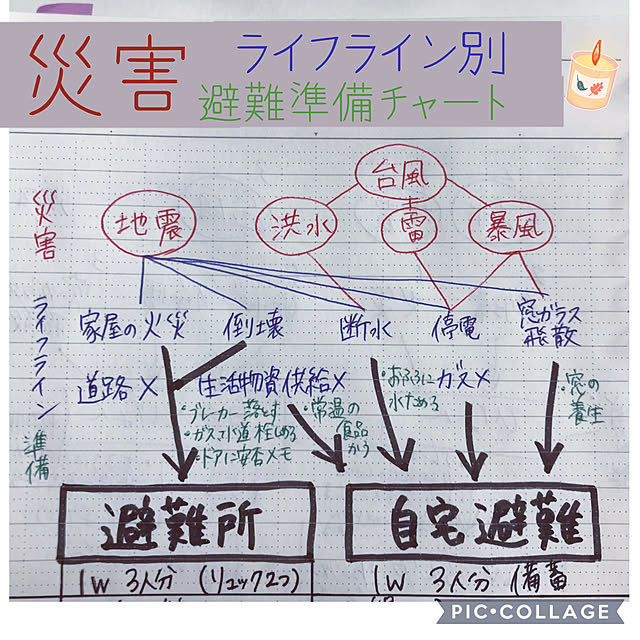 災害
ライフライン別
避難準備チャート
台風
災害
地震
洪水
雷
暴風
ライフライン
家屋の火災
倒壊
断水
停電
窓ガラス
飛散
道路×
生活物資供給×
ガス×
準備
・ブレーカー落とす
・ガスて水道栓しめる
・ドアに安否メモ
・常温の
食品
かう
・おふろに
水ためる
・窓の
養生
避難所
自宅避難
1w 3人分 (リュック2つ)
1w 3人分 備蓄
PIC•COLLAGE